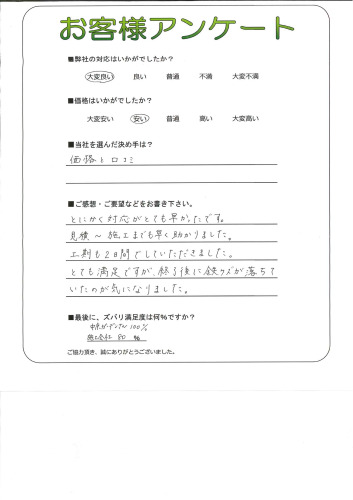 お客様アンケート
■弊社の対応はいかがでしたか？
大変良い 良い 普通 不満 大変不満
■価格はいかがでしたか？
大変安い 安い 普通 高い 大変高い
■当社を選んだ決め手は？
価格と口コミ
■ご感想・ご要望などをお書き下さい。
とにかく対応がとても早かったです。
見積～施工までも早く助かりました。
工期も2日間でしていただきました。
とても満足ですが、終了後に鉄クズが落ちて
いたのが気になりました。
■最後に、ズバリ満足度は何%ですか？
100%
施工会社 80 %
ご協力頂き、誠にありがとうございました。